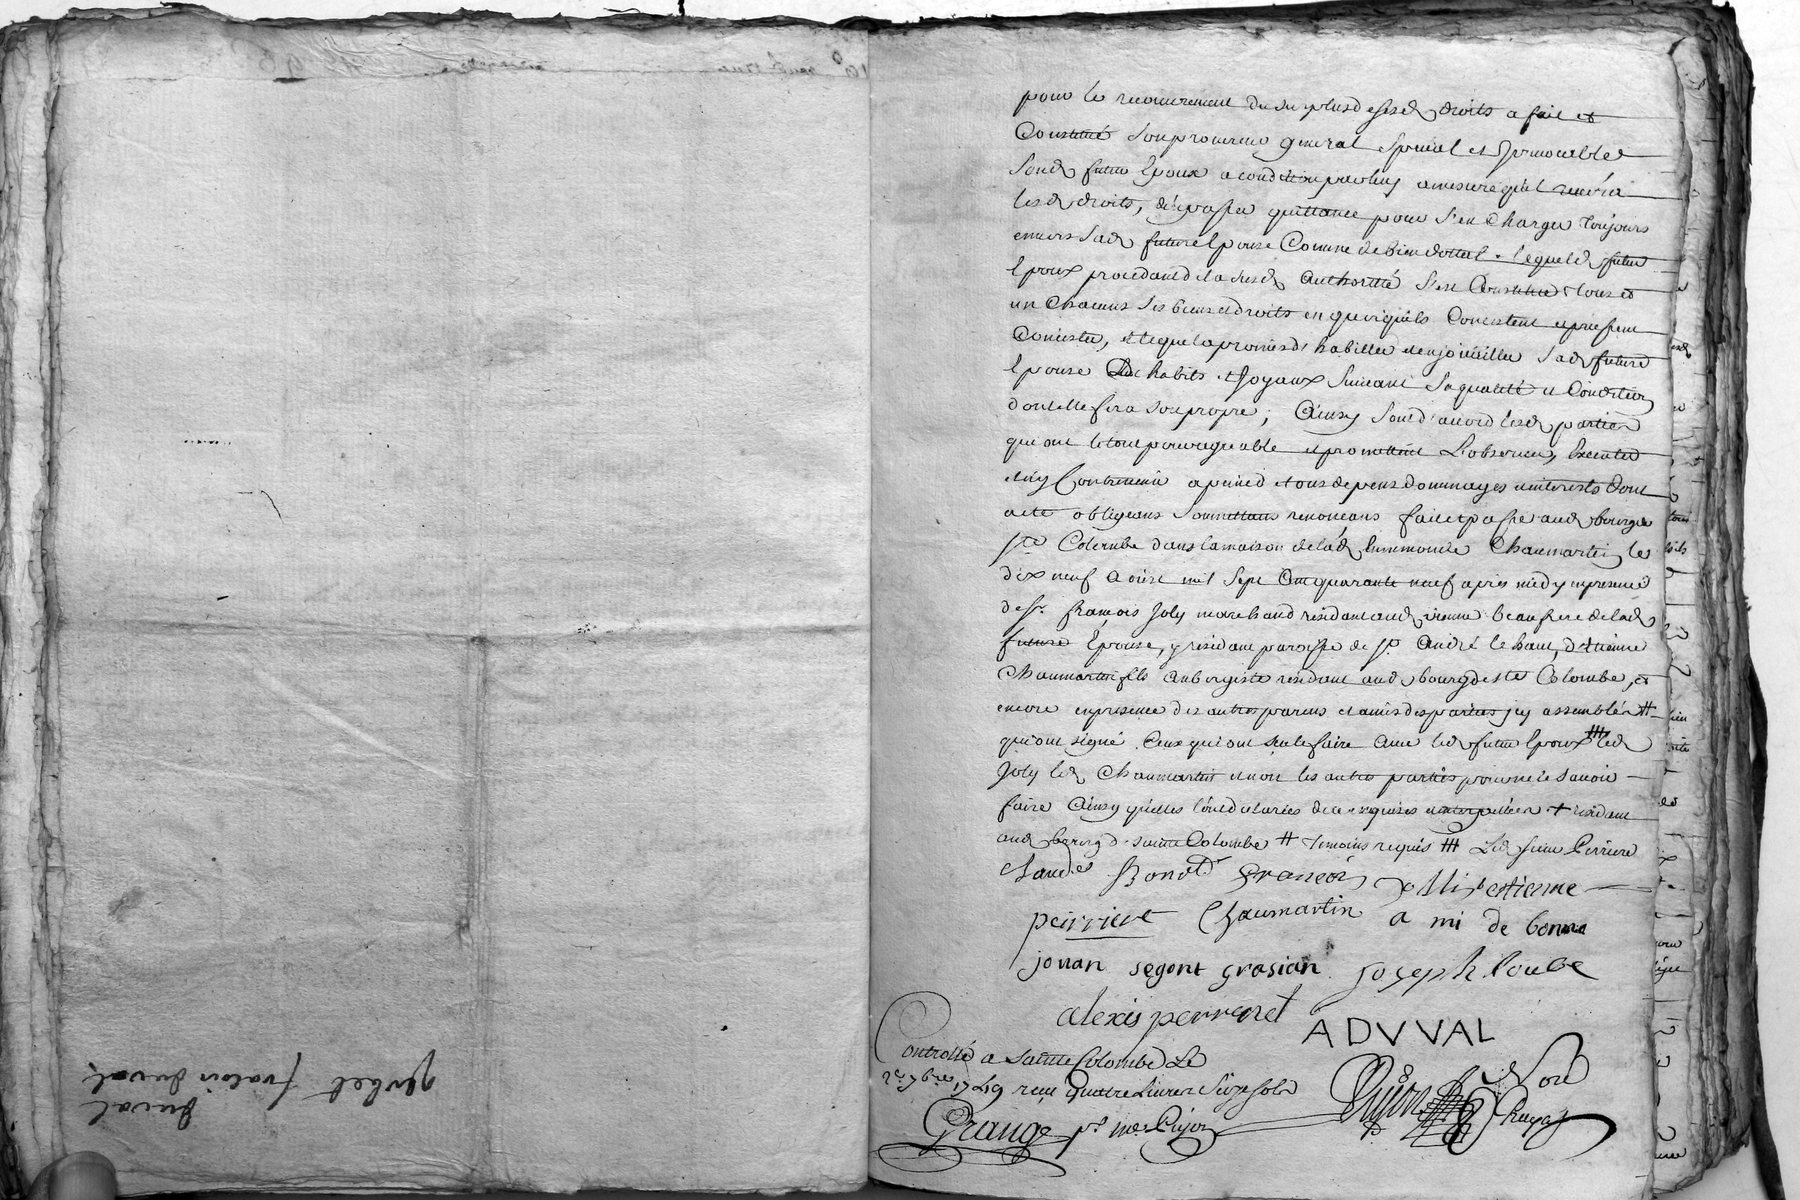 pour le recouvrement du surplus desesd droits a fait et
Constitué son procureur general special et Irrevocable
Sond futur Epoux a condition par luy a mesure quil recevra
lesd droits, d'en passer quittance pour s'en Charger toujours
envers Sad future Epouse Comme de bien dottal. lequel d futur
Epoux procedant de la susd Authorité s'est Constitué tous et
un Chacuns ses biens et droits en quoy quils Consistent et puissent
Consister, et lequel a promis d'habiller et enjoüailler Sad future
Epouse D'habits et Joyaux Suivant Sa qualité et Condition
dont elle fera son propre; Ainsy sont d'acord lesd parties
qui ont le tout pour agreable et promettent L'observer, Executer
et n'y Contrevenir a peine de tous depens dommages et interests dont
acte obligeans Soumettans renonceans fait et passé aud bourg de
Ste Colombe dans la maison de lad Chaumartin le
dix neuf Aoust mil Sept Cent quarante neuf après midy en presence
de Sr. françois Joly marchand residant aud vienne beaufrere de lad
future Epouse, y residant paroisse de St. André le haut, d'etienne
Chaumartin fils Aubergiste residant aud bourg de ste Colombe, et
encore en presence des autres parens et amis des parties jcy assemblés #
qui ont signé Ceux qui ont sceu le faire Avec led futur Epoux ## led
Joly led Chaumartin et non les autres parties pour ne le sçavoir
faire Ainsy quelles l'ont declarées de ce requises et interpellées + residant
aud bourg de sainte Colombe # temoins requis ## Led sieur Perriere
Claude Bond françois Jolli estienne
perriere Chaumartin a mi de bonne
jovian segont grasian joseph loube
alexis perreret ADVVAL
Controllé a Sainte Colombe Le
7bre 1749 receu Quatre Livres Seize sols
Grange pr me Pujos
duval